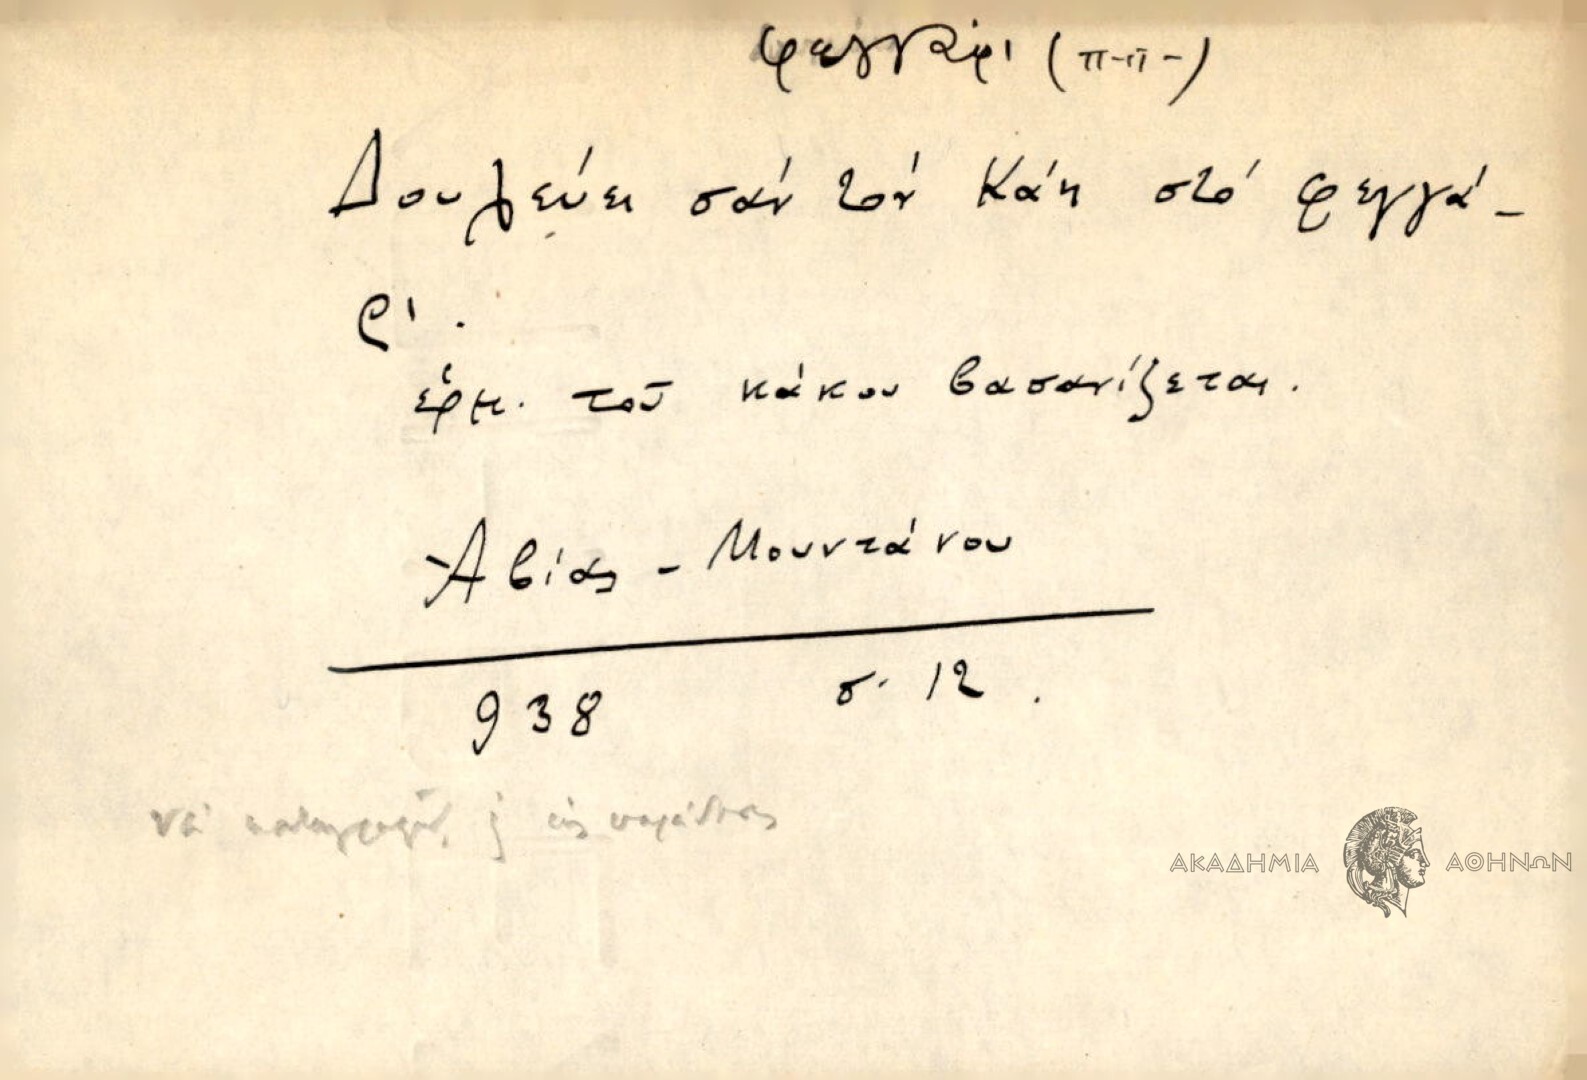 φεγγάρι (π-π-)
Δουλεύει σάν τόν Κάη στό φεγγά-
ρι.
ἑρμ. τοῦ κάκου βασανίζεται.
Ἀβίας - Μουντάνου
938 σ. 12.
νά καταγραφῇ ἡ εἰς παράδοσις
ΑΚΑΔΗΜΙΑ ΑΘΗΝΩΝ